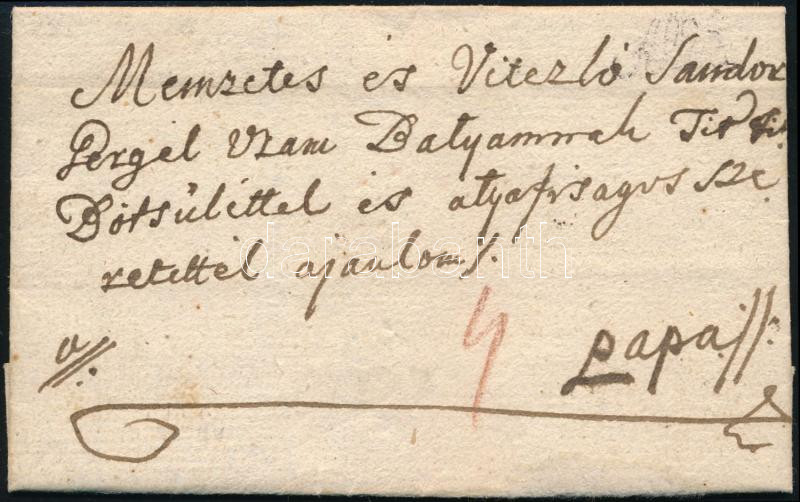 Memzetes és Vitezló Sandor
Gergel Uram Batyammak Tit
Bötsülettel és atyafisagos sze
retettel ajanlom
a//:
4
papa//:
darabanth